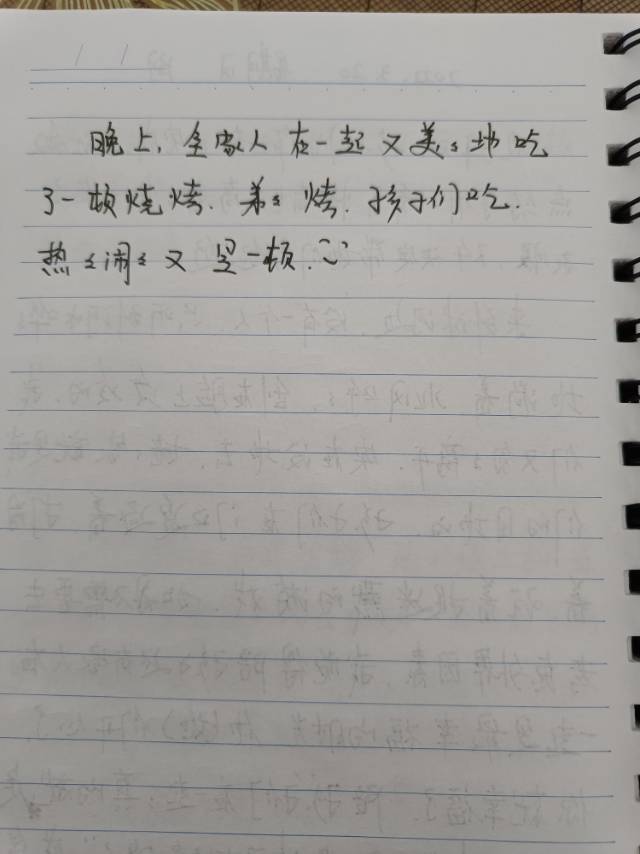 晚上,全家人在一起又美々地吃
了一顿烧烤.弟々烤.孩子们吃.
热々闹々又是一顿.